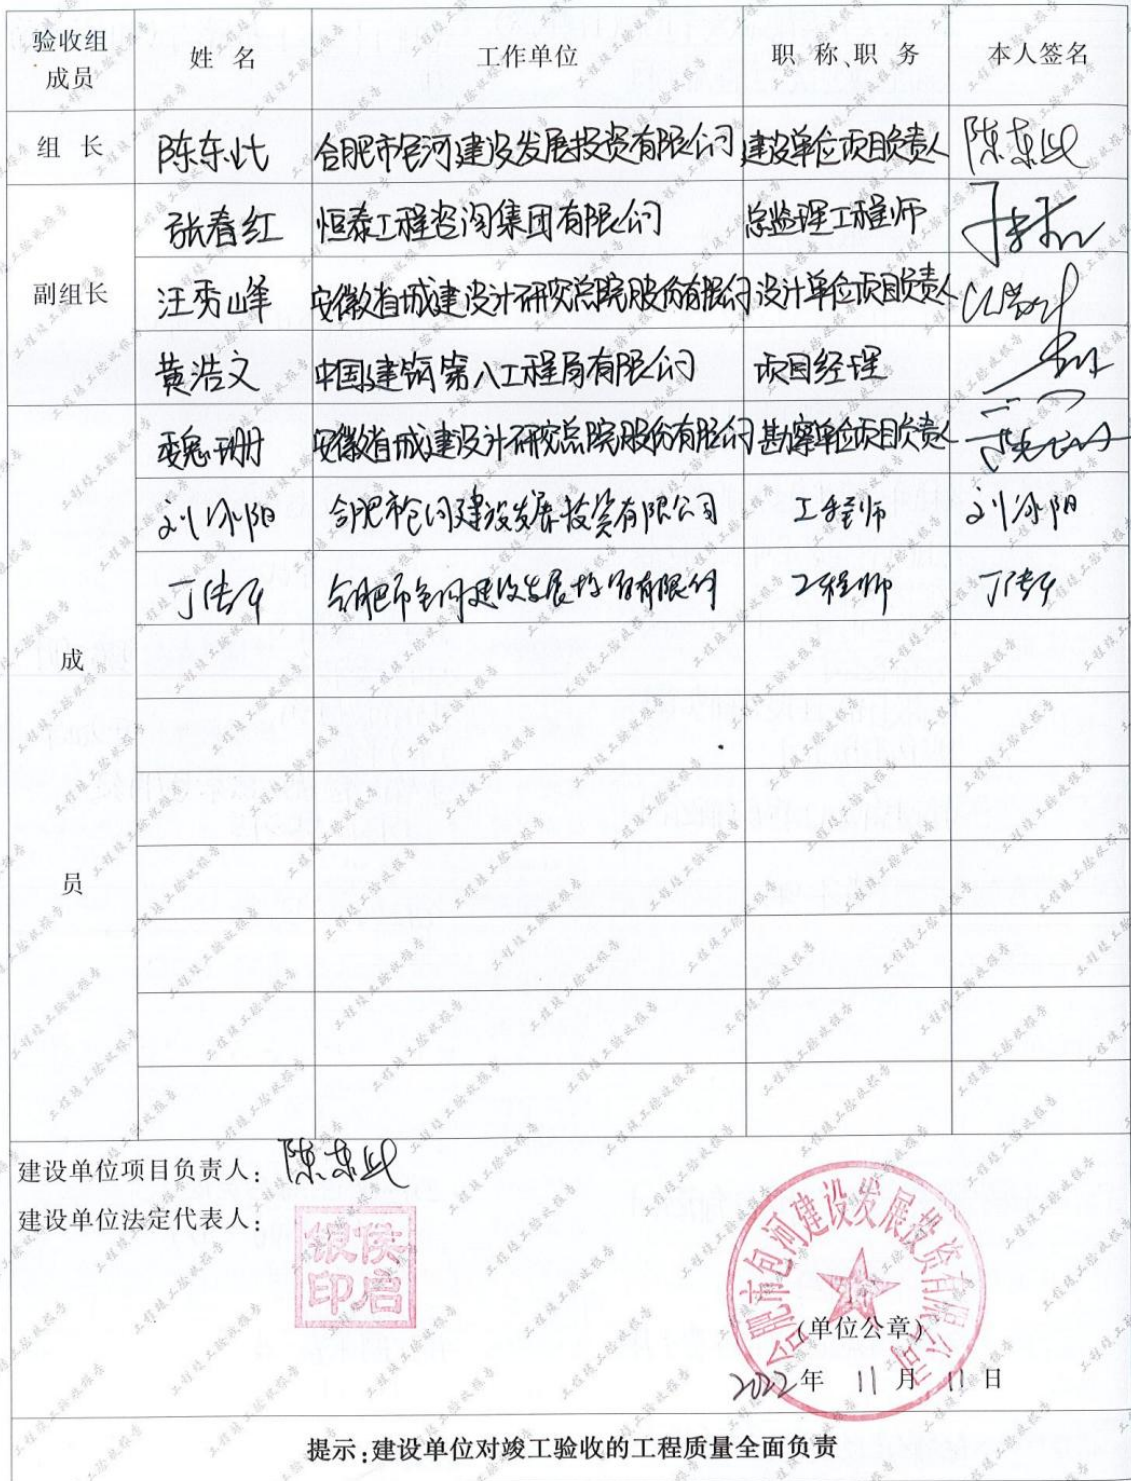 验收组成员 姓 名 工作单位 职 称、职 务 本人签名
组 长 陈东屹 合肥市包河建设发展投资有限公司 建设单位项目负责人
副组长
张春红 恒泰工程咨询集团有限公司 总监理工程师
汪秀峰 安徽省城建设计研究总院股份有限公司 设计单位项目负责人
黄浩文 中国建筑第八工程局有限公司 项目经理
成员
魏珊 安徽省城建设计研究总院股份有限公司 勘察单位项目负责人
刘冰阳 合肥市包河建设发展投资有限公司 工程师 刘冰阳
合肥市包河建设发展投资有限公司 工程师
建设单位项目负责人：
建设单位法定代表人：
侯启银印
合肥市包河建设发展投资有限公司
(单位公章)
2022年 11月 11日
提示：建设单位对竣工验收的工程质量全面负责
工程竣工验收报告